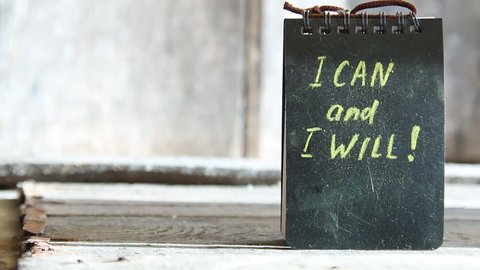 I CAN
and
I WILL!